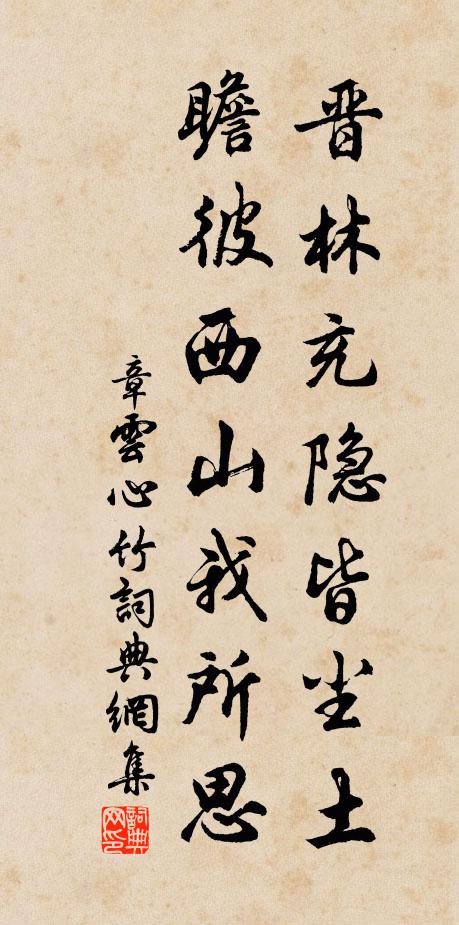 晋林充隐皆尘土
瞻彼西山我所思
章雲心竹詞典網集
詞典网印